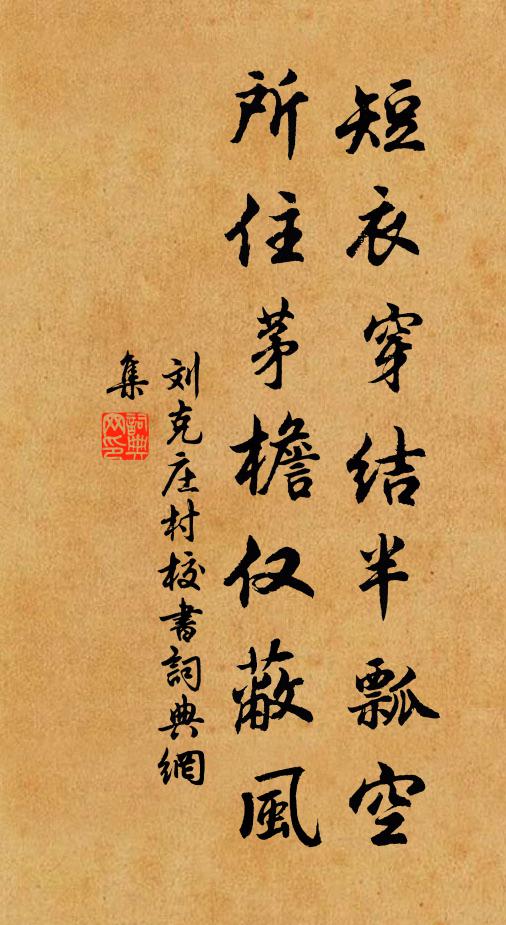 短衣穿结半瓢空
所住茅檐仅蔽風
刘克庄村校書詞典網
集
詞典網印